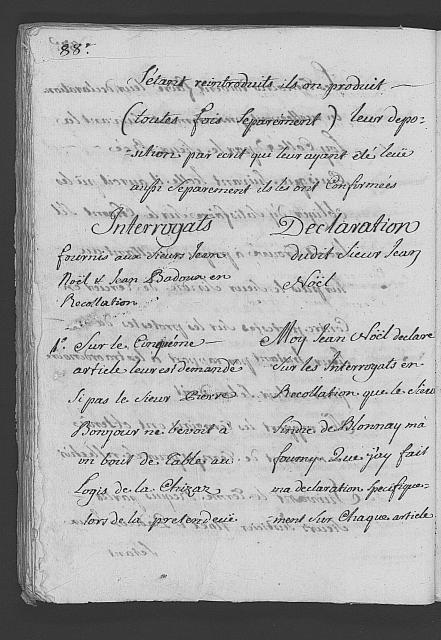 88.
S'etant reintroduits ils on produit
(toutes fois Separement) leur depo-
sition par ecrit que leur ayant été leüe
aussi Separement ils les ont Confirmées
Interrogats
fournis aux Sieurs Jean
Noël & Jean Badoux en
Recollation
1°. Sur le Cinquieme
article leur est demandé
Si pas le Sieur Pierre
Bonjour ne bevoit a
un bout de Table au
Logis de la Chizaz
lors de la pretendeüe
Declaration
dudit Sieur Jean
Noël
Moy Jean Noël declare
Sur les Interrogats en
Recollation que le Sieur
de Blonnay m'a
fourny Que j'ey fait
ma declaration Specifique-
ment Sur Chaque article